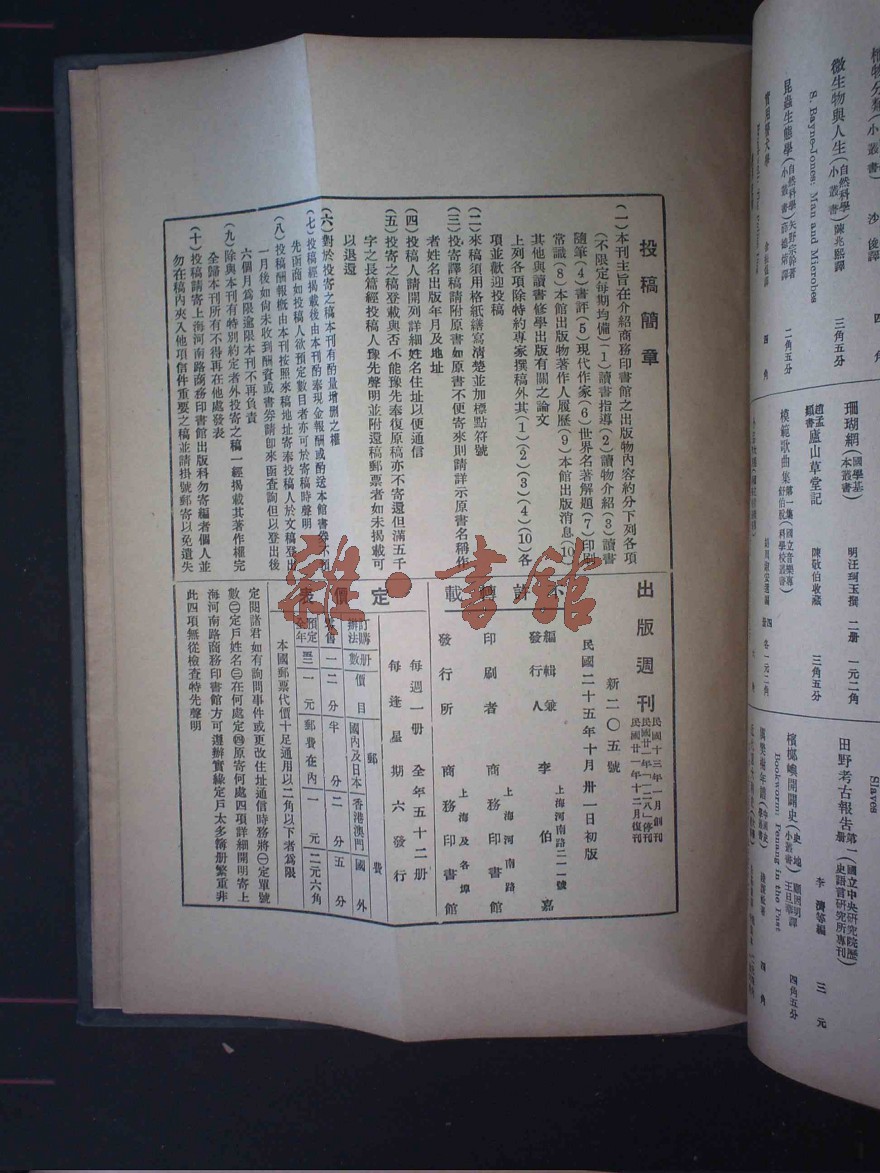 投稿簡章
(一)本刊主旨在介紹商務印書館之出版物內容約分下列各項
(不限定每期均備)(1)讀書指導(2)讀物介紹(3)讀書
隨筆(4)書評(5)現代作家(6)世界名著解題(7)印刷
常識(8)本館出版物著作人履歷(9)本館出版消息(10)
其他與讀書修學出版有關之論文
上列各項除特約專家撰稿外其(1)(2)(3)(4)(10)各
項並歡迎投稿
(二)來稿須用格紙繕寫清楚並加標點符號
(三)投寄譯稿請附原書如原書不便寄來則請詳示原書名稱作
者姓名出版年月及地址
(四)投稿人請開列詳細姓名住址以便通信
(五)投寄之稿登載與否不能豫先奉復原稿亦不寄還但滿五千
字之長篇經投稿人豫先聲明並附還稿郵票者如未揭載可
以退還
(六)對於投寄之稿本刊有酌量增删之權
(七)投稿經揭載後由本刊酌奉現金報酬或酌送本館書券不須
先函商如投稿人欲預定數目者亦可於寄稿時聲明
(八)投稿酬報概由本刊按照來稿地址寄奉投稿人於文稿登出
一月後如尚未收到酬資或書券請卽來函查詢但以登出後
六個月爲限逾限本刊不再負責
(九)除與本刊有特別約定者外投寄之稿一經揭載其著作權完
全歸本刊所有不得再在他處發表
(十)投稿請寄上海河南路商務印書館出版科勿寄編者個人並
勿在稿內夾入他項信件重要之稿並請掛號郵寄以免遺失
出版週刊
民國十三年一月創刊
民國廿一年「一二八」停刊
民國廿一年十二月復刊
新二〇五號
民國二十五年十月卅一日初版
不許轉載
編輯兼發行人 李伯嘉
上海河南路二一一號
印刷者 商務印書館
上海河南路
發行所 商務印書館
上海及各埠
每週一册 全年五十二册
每逢星期六發行
定價表
訂購辦法 册數 價目 郵費
國內及日本 香港澳門 國外
零售 一 二分 半分 二分 五分
預定全年 一元 郵費在內 一元 二元六角
本國郵票代價十足通用以二角以下者爲限
定閱諸君如有詢問事件或更改住址通信時務將㊀定單號
數㊁定戶姓名㊂在何處定㊃原寄何處四項詳細開明寄上
海河南路商務印書館方可遵辦實緣定戶太多簿册繁重非
此四項無從檢查特先聲明
植物分類(小叢書) 沙俊譯
微生物與人生(自然科學小叢書)陳兆熙譯 三角五分
S. Bayne-Jones: Man and Microbes
昆蟲生態學(自然科學小叢書)矢野宗幹著 二角五分
四角
珊瑚網(國學基本叢書) 明汪珂玉撰 二册 一元二角
趙孟頫書 廬山草堂記 陳敬伯收藏 三角五分
模範歌曲集 第一集 各一元二角
Slaves
田野考古報告 第一册(國立中央研究院歷史語言研究所專刊) 李濟等編 三元
檳榔嶼開闢史(史地小叢書)顧因明 王旦華譯 四角五分
Bookworm: Penang in the Past
四角
雜·書館